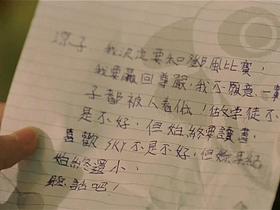 涼子，我決定要和鄉風比賽，
我要贏回尊嚴，我不願意一輩
子都被人看低！做學徒不
是不好，但始終要讀書，
喜歡 SKY 不是不好，但妳年紀
始終還小，
聽話吧！